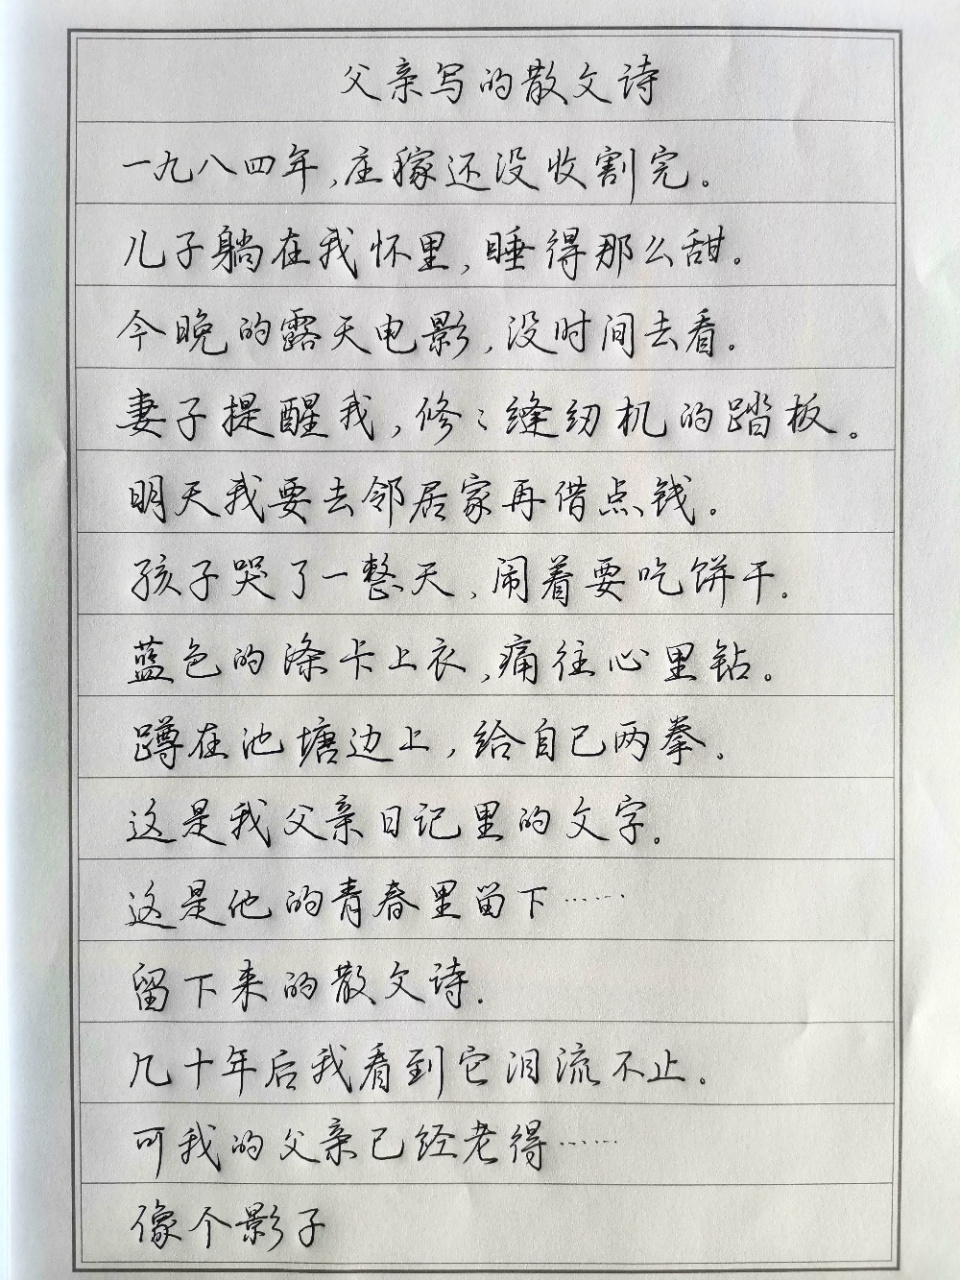 父亲写的散文诗
一九八四年,庄稼还没收割完。
儿子躺在我怀里,睡得那么甜。
今晚的露天电影,没时间去看。
妻子提醒我,修:缝纫机的踏板。
明天我要去邻居家再借点钱。
孩子哭了一整天,闹着要吃饼干。
蓝色的涤卡上衣,痛往心里钻。
蹲在池塘边上,给自己两拳。
这是我父亲日记里的文字。
这是他的青春里留下……
留下来的散文诗.
几十年后我看到它泪流不止。
可我的父亲已经老得……
像个影子